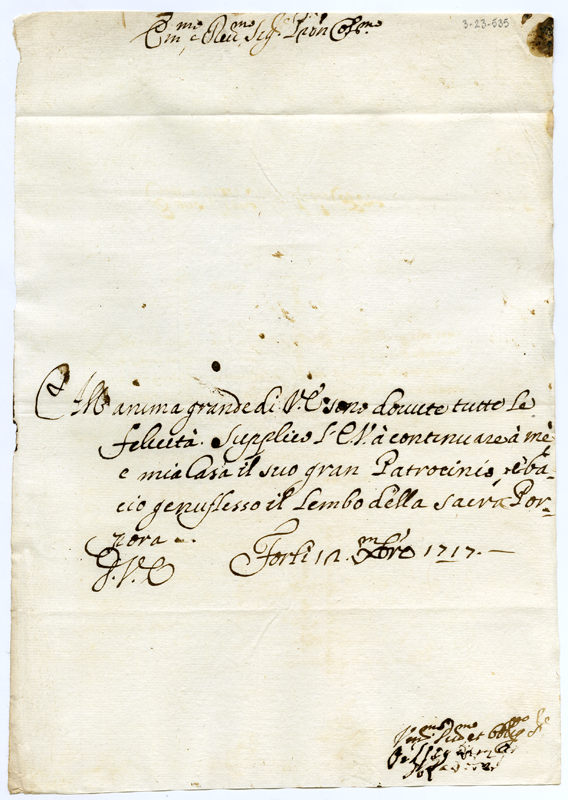 3-23-535
Em.mo e Rev.mo Sig.r P.ron Col.mo
All' anima grande di V. E. sono douute tutte le
felicità. Supplico l'E.V. à continuare à me,
e mia Casa il suo gran Patrocinio, e ba-
cio genuflesso il lembo della sacra Por-
pora.
D. V. E. Forlì 12. Xbre 1717.